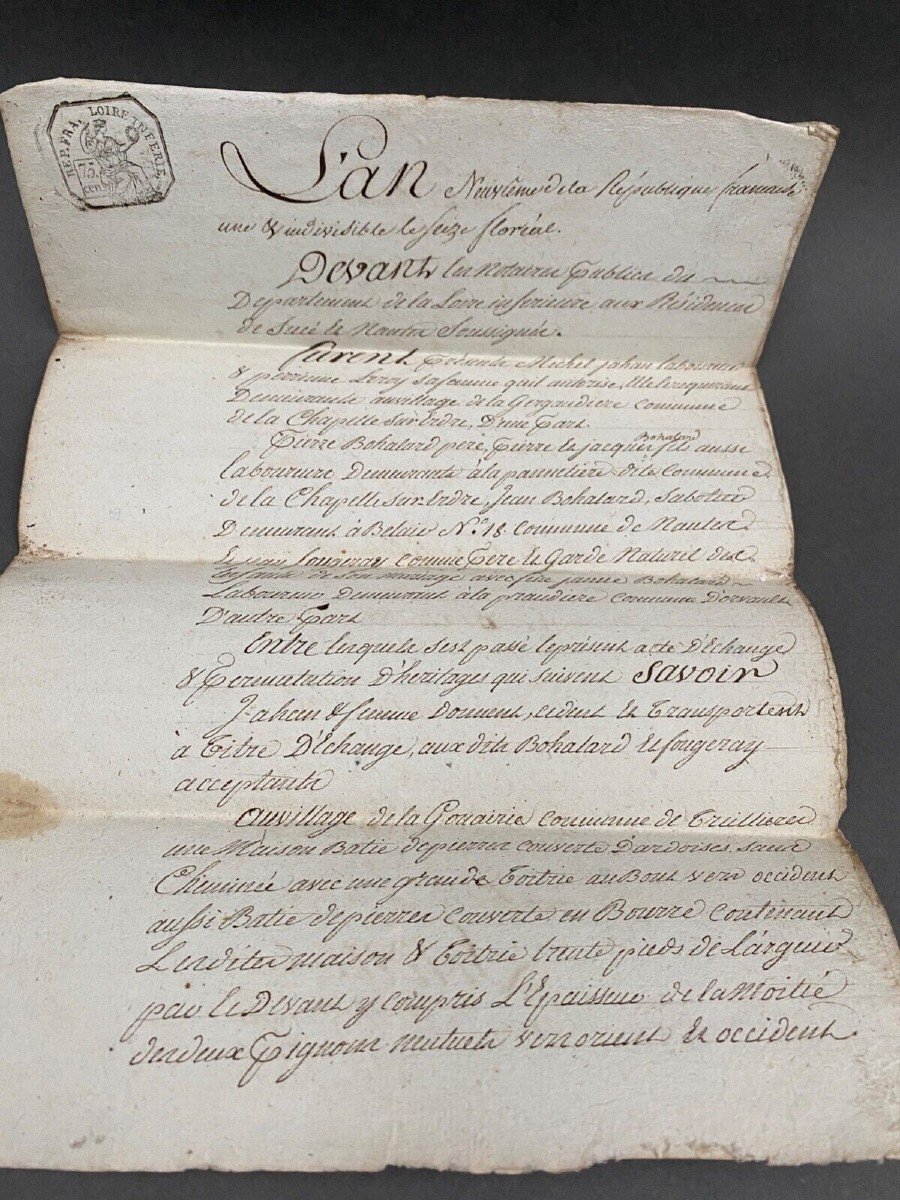 REP. FRA. LOIRE INFERIE.
75
cen.
L'an Neuvième de la République francaise
une & indivisible le seize floréal.
Devant les Notaires Publics du
Departement de la Loire inferieure aux Résidences
de Sucé & Nantes Soussignés.
furent Présents Michel Jahan laboureur
& perrine Leroy sa femme qu'il autorise, elle le requerant
Demeurants au village de la Gergaudiere commune
de la Chapelle sur Erdre, D'une Part.
Pierre Bohatard père, Pierre & jacques Bohatard fils aussi
laboureurs Demeurants à la pannetiere dite Commune
de la Chapelle sur Erdre, Jean Bohatard, Sabotier
Demeurant à Belair N.º 18. Commune de Nantes
& jean fougeray comme Père & Garde Naturel des
Enfants de son mariage avec feue janne Bohatard
Laboureur Demeurant à la praudiere commune D'orvault
D'autre Part
Entre lesquels s'est passé le présent acte D'Echange
& Permutation D'héritages qui suivent Savoir
Jahan & femme Donnent, cédent & Transportent
à Titre D'Echange, aux dits Bohatard & fougeray
acceptants
au village de la Gouairie commune de Treillieres
une Maison Batie de pierres couverte D'ardoises, sans
Cheminée avec une grande Toitrie au Bout vers occident
aussi Batie de pierres couverte en Bourre contenant
Lesdites maison & Toitrie trente pieds de Largeur
par le Devant y compris L'Epaisseur de la Moitié
des deux Pignons mutuels vers orient & occident